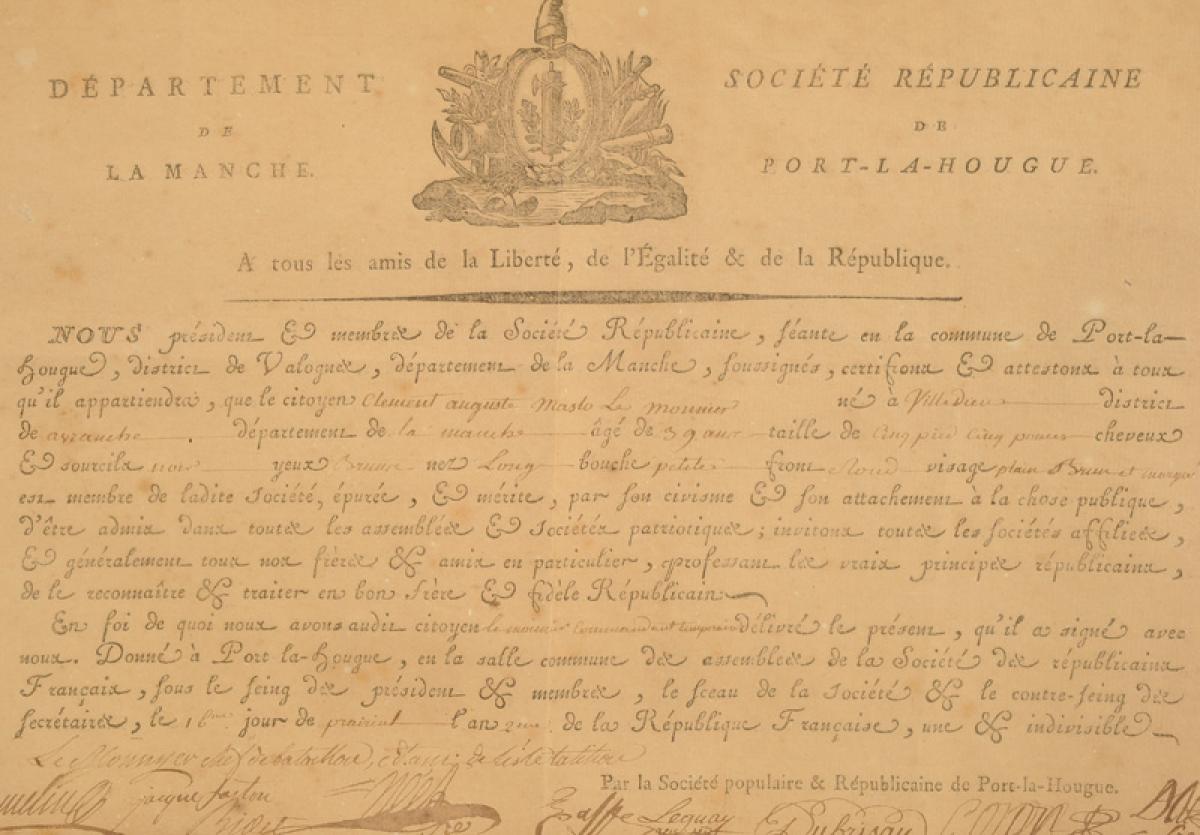 DÉPARTEMENT
DE
LA MANCHE.
SOCIÉTÉ RÉPUBLICAINE
DE
PORT-LA-HOUGUE.
A tous les amis de la Liberté, de l'Égalité & de la République.
NOUS président & membres de la Société Républicaine, séante en la commune de Port-la-
Hougue, district de Valognes, département de la Manche, soussignés, certifions & attestons à tous
qu'il appartiendra, que le citoyen Clement auguste Maslo Le monnier né à Villedieu district
de avranche département de la manche âgé de 39 ans taille de Cinq pied cinq pouces cheveux
& sourcils noir yeux Bruns nez Long bouche petite front Rond visage plain Brun et marqué
est membre de ladite Société, épurée, & mérite, par son civisme & son attachement à la chose publique,
d'être admis dans toutes les assemblées & Sociétés patriotiques; invitons toutes les sociétés affiliées,
& généralement tous nos frères & amis en particulier, professant les vrais principes républicains,
de le reconnaître & traiter en bon Frère & fidèle Républicain
En foi de quoi nous avons audit citoyen le monnier Commandant temporaire délivré le présent, qu'il a signé avec
nous. Donné à Port-la-Hougue, en la salle commune des assemblées de la Société des républicains
Français, sous le seing des président & membres, le sceau de la Société & le contre-seing des
secrétaires, le jour de prairial l'an 2me de la République Française, une & indivisible
Le Monnyer chef de bataillon,
Par la Société populaire & Républicaine de Port-la-Hougue.
jacque
Lequay